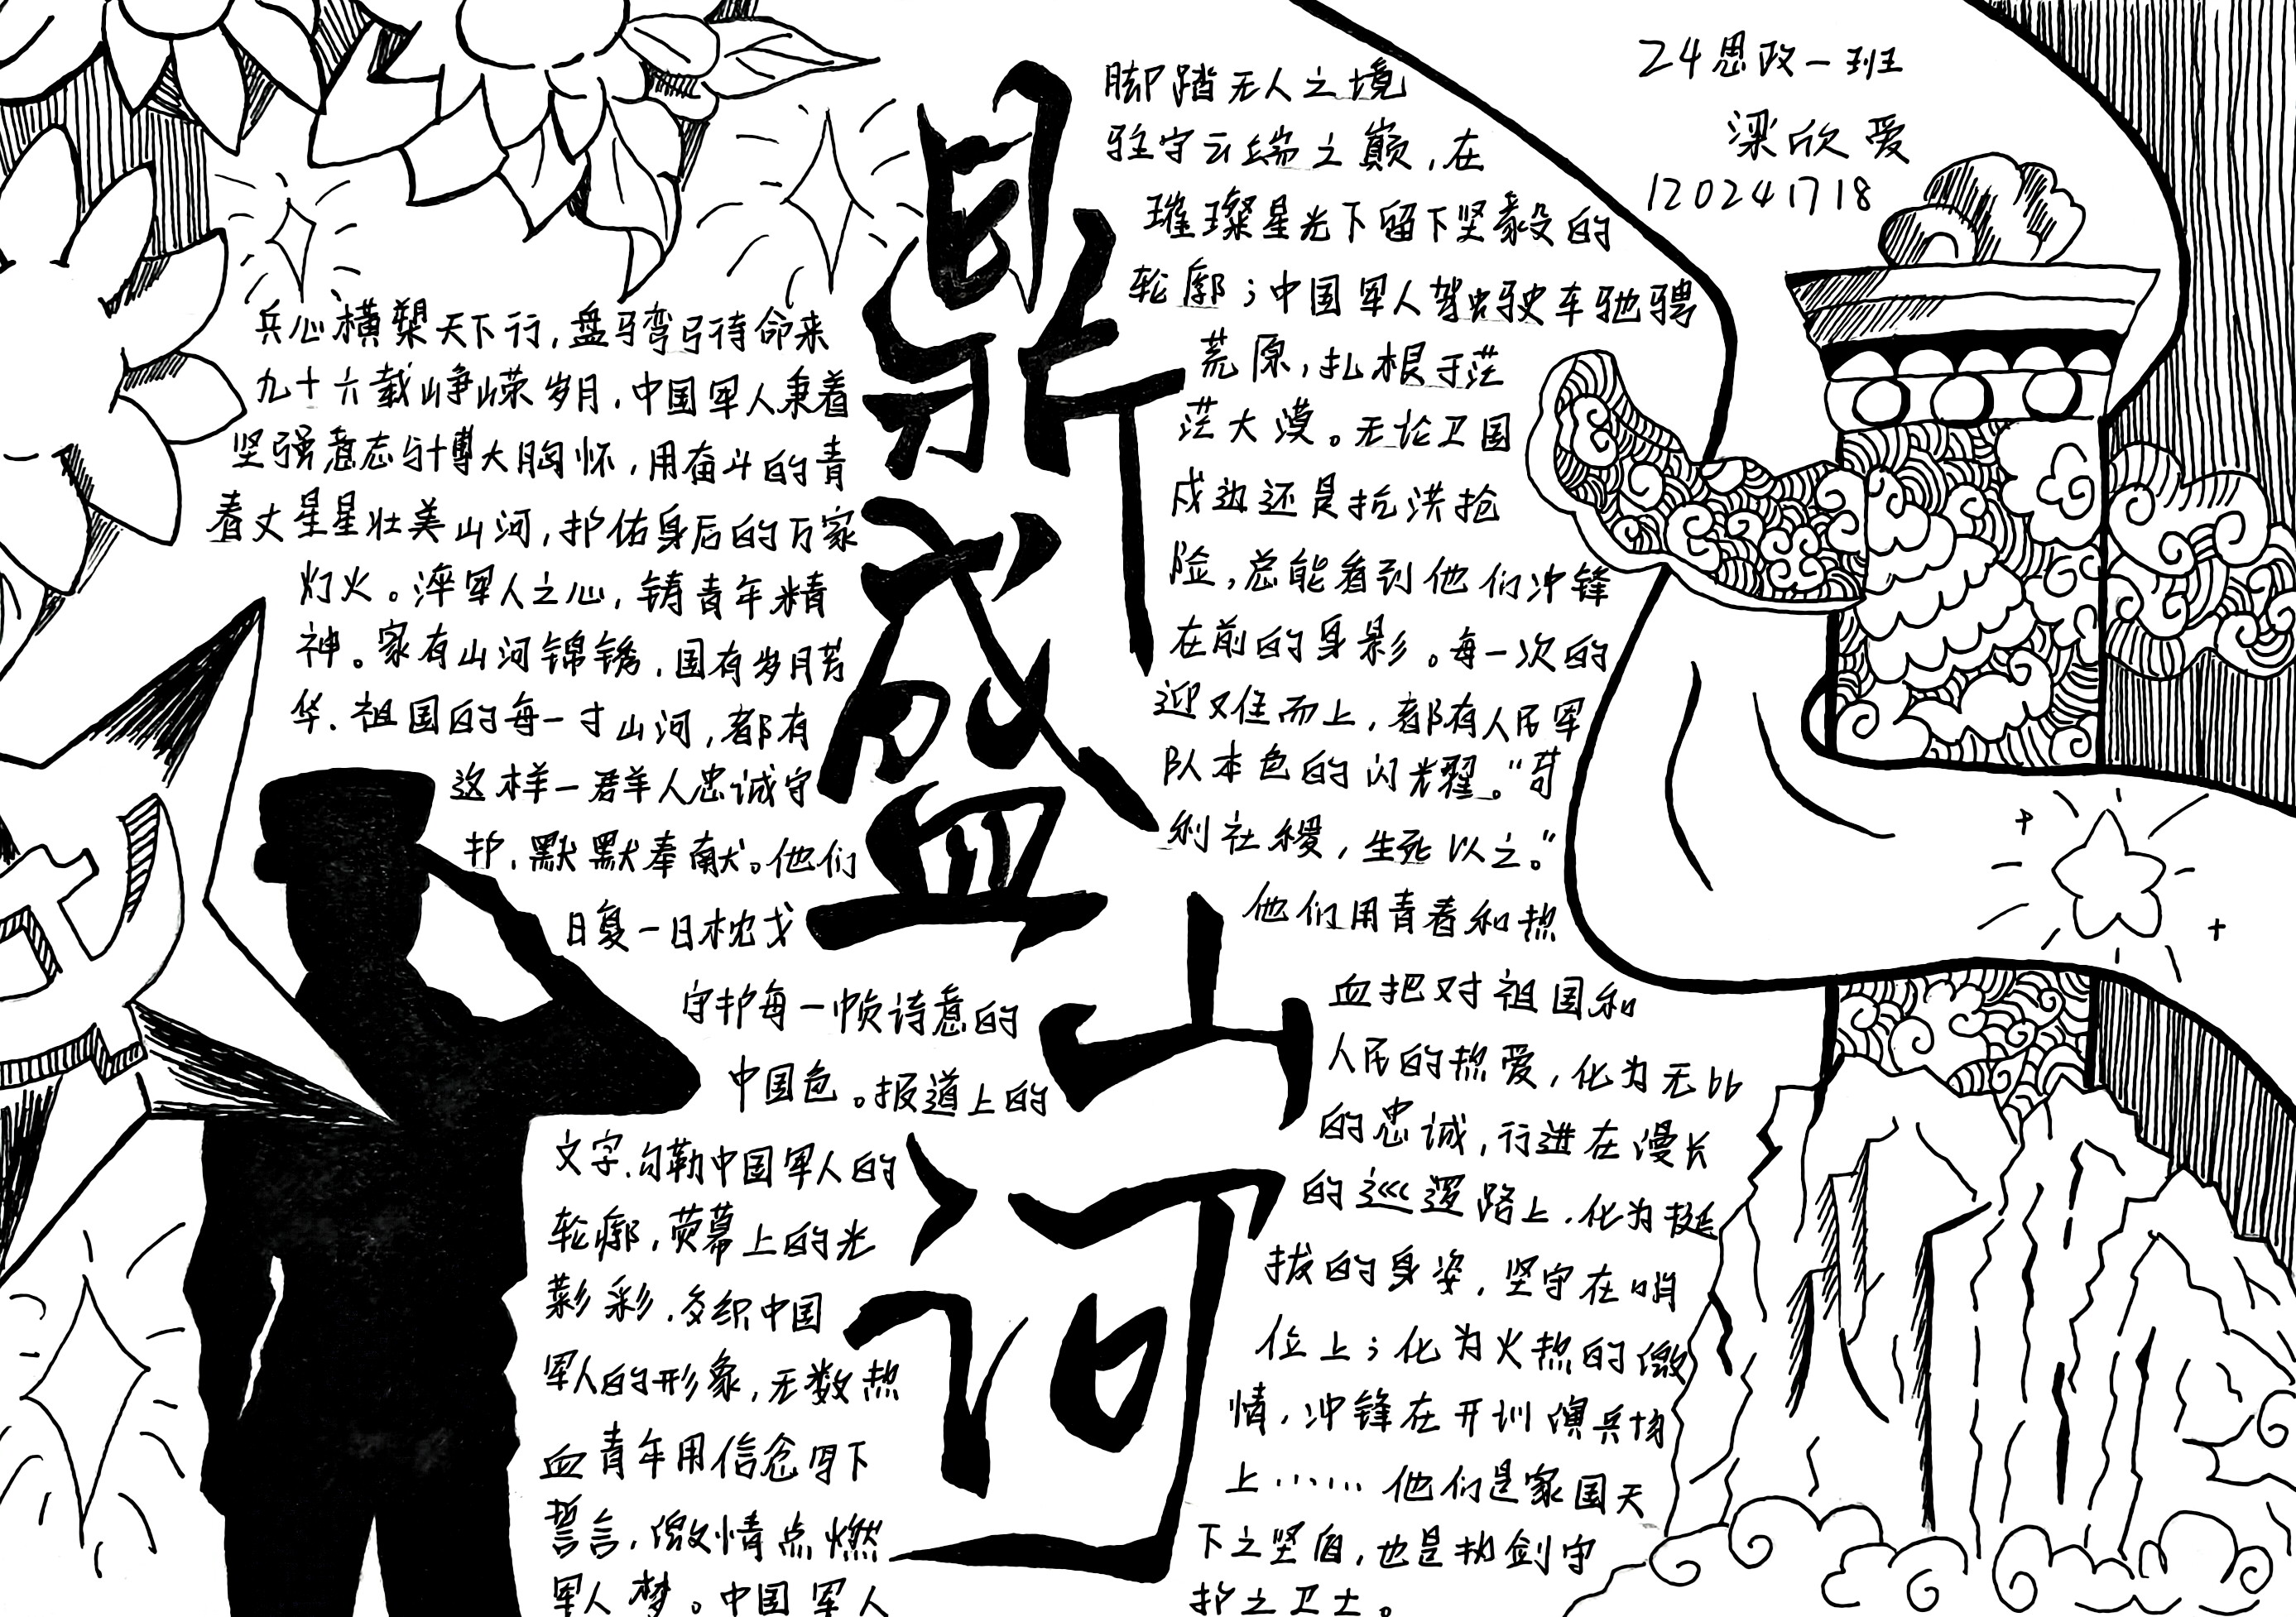 24思政一班
梁欣爱
120241718
鼎盛山河
兵心横槊天下行，盘马弯弓待命来
九十六载峥嵘岁月，中国军人秉着
坚强意志与博大胸怀，用奋斗的青
春丈星星壮美山河，护佑身后的万家
灯火。淬军人之心，铸青年精
神。家有山河锦锈，国有岁月芳
华、祖国的每一寸山河，都有
这样一群人忠诚守
护、默默奉献。他们
日复一日枕戈
守护每一帧诗意的
中国色。报道上的
文字、勾勒中国军人的
轮廓，荧幕上的光
彩，织中国
军人的形象，无数热
血青年用信念写下
誓言，激情点燃
军人梦。中国军人
脚踏无人之境
驻守云端之巅，在
璀璨星光下留下坚毅的
轮廓；中国军人驾驶车驰骋
荒原，扎根于茫
茫大漠。无论卫国
戍边还是抗洪抢
险，总能看到他们冲锋
在前的身影。每一次的
迎难而上，都有人民军
队本色的闪光耀。“苟
利社稷，生死以之。”
他们用青春和热
血把对祖国和
人民的热爱，化为无比
的忠诚，行进在漫长
的巡逻路上，化为挺
拔的身姿，坚守在哨
位上；化为火热的激
情，冲锋在开训演兵场
上……他们是家国天
下之坚盾，也是执剑守
护之卫士。